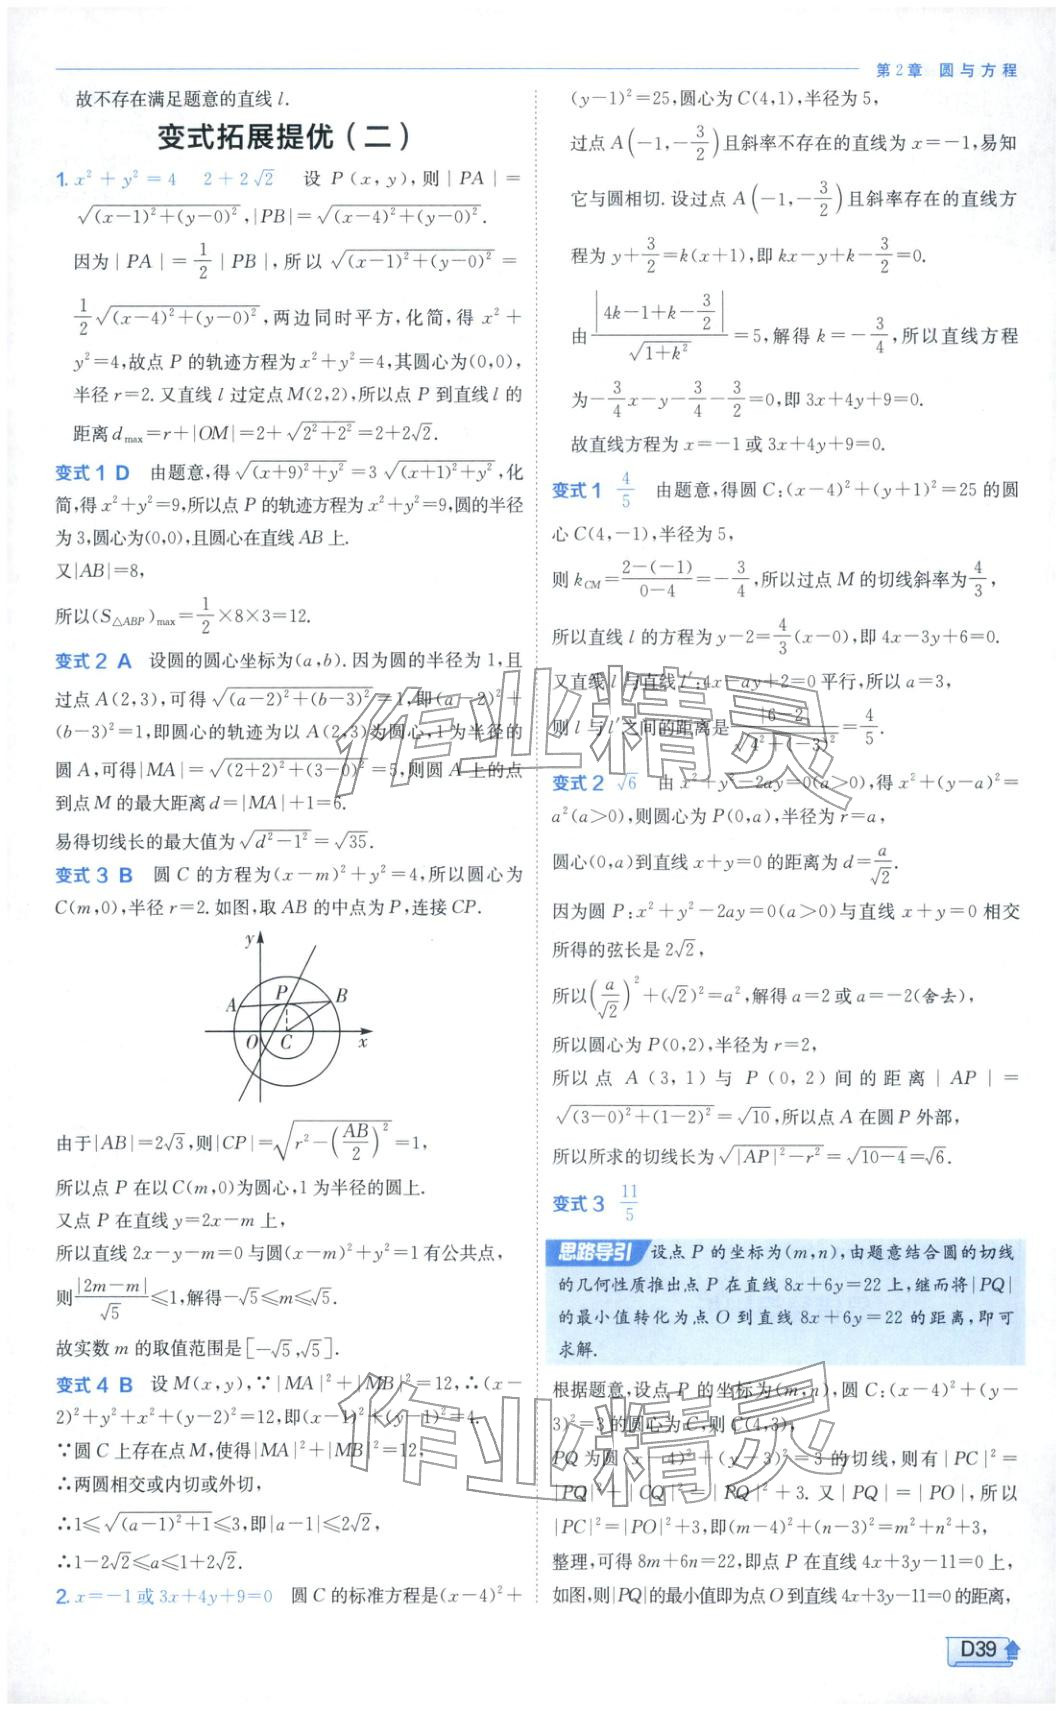 第2章 圆与方程
故不存在满足题意的直线 l.
变式拓展提优(二)
1. x²+y²=4 2+2√2 设 P(x,y),则|PA|=
√((x-1)²+(y-0)²),|PB|=√((x-4)²+(y-0)²).
因为|PA|=1/2|PB|,所以√((x-1)²+(y-0)²)=
1/2√((x-4)²+(y-0)²),两边同时平方,化简,得 x²+
y²=4,故点 P 的轨迹方程为 x²+y²=4,其圆心为(0,0),
半径 r=2.又直线 l 过定点 M(2,2),所以点 P 到直线 l 的
距离 dmax=r+|OM|=2+√(2²+2²)=2+2√2.
变式1 D 由题意,得√((x+9)²+y²)=3√((x+1)²+y²),化
简,得 x²+y²=9,所以点 P 的轨迹方程为 x²+y²=9,圆的半径
为 3,圆心为(0,0),且圆心在直线 AB 上.
又|AB|=8,
所以(S△ABP)max=1/2×8×3=12.
变式2 A 设圆的圆心坐标为(a,b).因为圆的半径为 1,且
过点 A(2,3),可得√((a-2)²+(b-3)²)=1,即(a-2)²+
(b-3)²=1,即圆心的轨迹为以 A(2,3)为圆心,1 为半径的
圆 A,可得|MA|=√((2+2)²+(3-0)²)=5,则圆 A 上的点
到点 M 的最大距离 d=|MA|+1=6.
易得切线长的最大值为√(d²-1²)=√35.
变式3 B 圆 C 的方程为(x-m)²+y²=4,所以圆心为
C(m,0),半径 r=2.如图,取 AB 的中点为 P,连接 CP.
y
A
P
B
O
C
x
由于|AB|=2√3,则|CP|=√(r²-(AB/2)²)=1,
所以点 P 在以 C(m,0)为圆心,1 为半径的圆上.
又点 P 在直线 y=2x-m 上,
所以直线 2x-y-m=0 与圆(x-m)²+y²=1 有公共点,
则|2m-m|/√5≤1,解得-√5≤m≤√5.
故实数 m 的取值范围是[-√5,√5].
变式4 B 设 M(x,y),∵|MA|²+|MB|²=12,∴(x-
2)²+y²+x²+(y-2)²=12,即(x-1)²+(y-1)²=4.
∵圆 C 上存在点 M,使得|MA|²+|MB|²=12,
∴两圆相交或内切或外切,
∴1≤√((a-1)²+1)≤3,即|a-1|≤2√2,
∴1-2√2≤a≤1+2√2.
2. x=-1 或 3x+4y+9=0 圆 C 的标准方程是(x-4)²+
(y-1)²=25,圆心为 C(4,1),半径为 5,
过点 A(-1,-3/2)且斜率不存在的直线为 x=-1,易知
它与圆相切.设过点 A(-1,-3/2)且斜率存在的直线方
程为 y+3/2=k(x+1),即 kx-y+k-3/2=0.
由|4k-1+k-3/2|/√(1+k²)=5,解得 k=-3/4,所以直线方程
为-3/4x-y-3/4-3/2=0,即 3x+4y+9=0.
故直线方程为 x=-1 或 3x+4y+9=0.
变式1 4/5 由题意,得圆 C:(x-4)²+(y+1)²=25 的圆
心 C(4,-1),半径为 5,
则 kCM=(2-(-1))/(0-4)=-3/4,所以过点 M 的切线斜率为4/3,
所以直线 l 的方程为 y-2=4/3(x-0),即 4x-3y+6=0.
又直线 l 与直线 l′:4x-ay+2=0 平行,所以 a=3,
则 l 与 l′之间的距离是|6-2|/√(4²+(-3)²)=4/5.
变式2 √6 由 x²+y²-2ay=0(a>0),得 x²+(y-a)²=
a²(a>0),则圆心为 P(0,a),半径为 r=a,
圆心(0,a)到直线 x+y=0 的距离为 d=a/√2.
因为圆 P:x²+y²-2ay=0(a>0)与直线 x+y=0 相交
所得的弦长是 2√2,
所以(a/√2)²+(√2)²=a²,解得 a=2 或 a=-2(舍去),
所以圆心为 P(0,2),半径为 r=2,
所以点 A(3,1)与 P(0,2)间的距离|AP|=
√((3-0)²+(1-2)²)=√10,所以点 A 在圆 P 外部,
所以所求的切线长为√(|AP|²-r²)=√(10-4)=√6.
变式3 11/5
思路导引 设点 P 的坐标为(m,n),由题意结合圆的切线
的几何性质推出点 P 在直线 8x+6y=22 上,继而将|PQ|
的最小值转化为点 O 到直线 8x+6y=22 的距离,即可
求解.
根据题意,设点 P 的坐标为(m,n),圆 C:(x-4)²+(y-
3)²=3 的圆心为 C,则 C(4,3),
PQ 为圆(x-4)²+(y-3)²=3 的切线,则有|PC|²=
|PQ|²+|CQ|²=|PQ|²+3.又|PQ|=|PO|,所以
|PC|²=|PO|²+3,即(m-4)²+(n-3)²=m²+n²+3,
整理,可得 8m+6n=22,即点 P 在直线 4x+3y-11=0 上,
如图,则|PQ|的最小值即为点 O 到直线 4x+3y-11=0 的距离,
D39
作业精灵
作业精灵